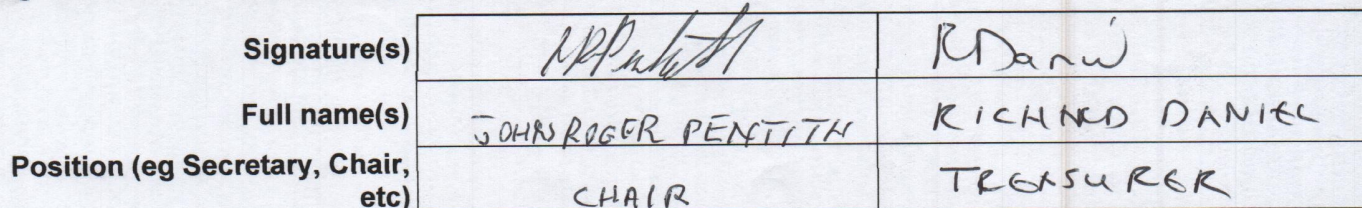 Signature(s)
Full name(s) JOHN ROGER PENTITH RICHARD DANIEL
Position (eg Secretary, Chair,
etc) CHAIR TREASURER